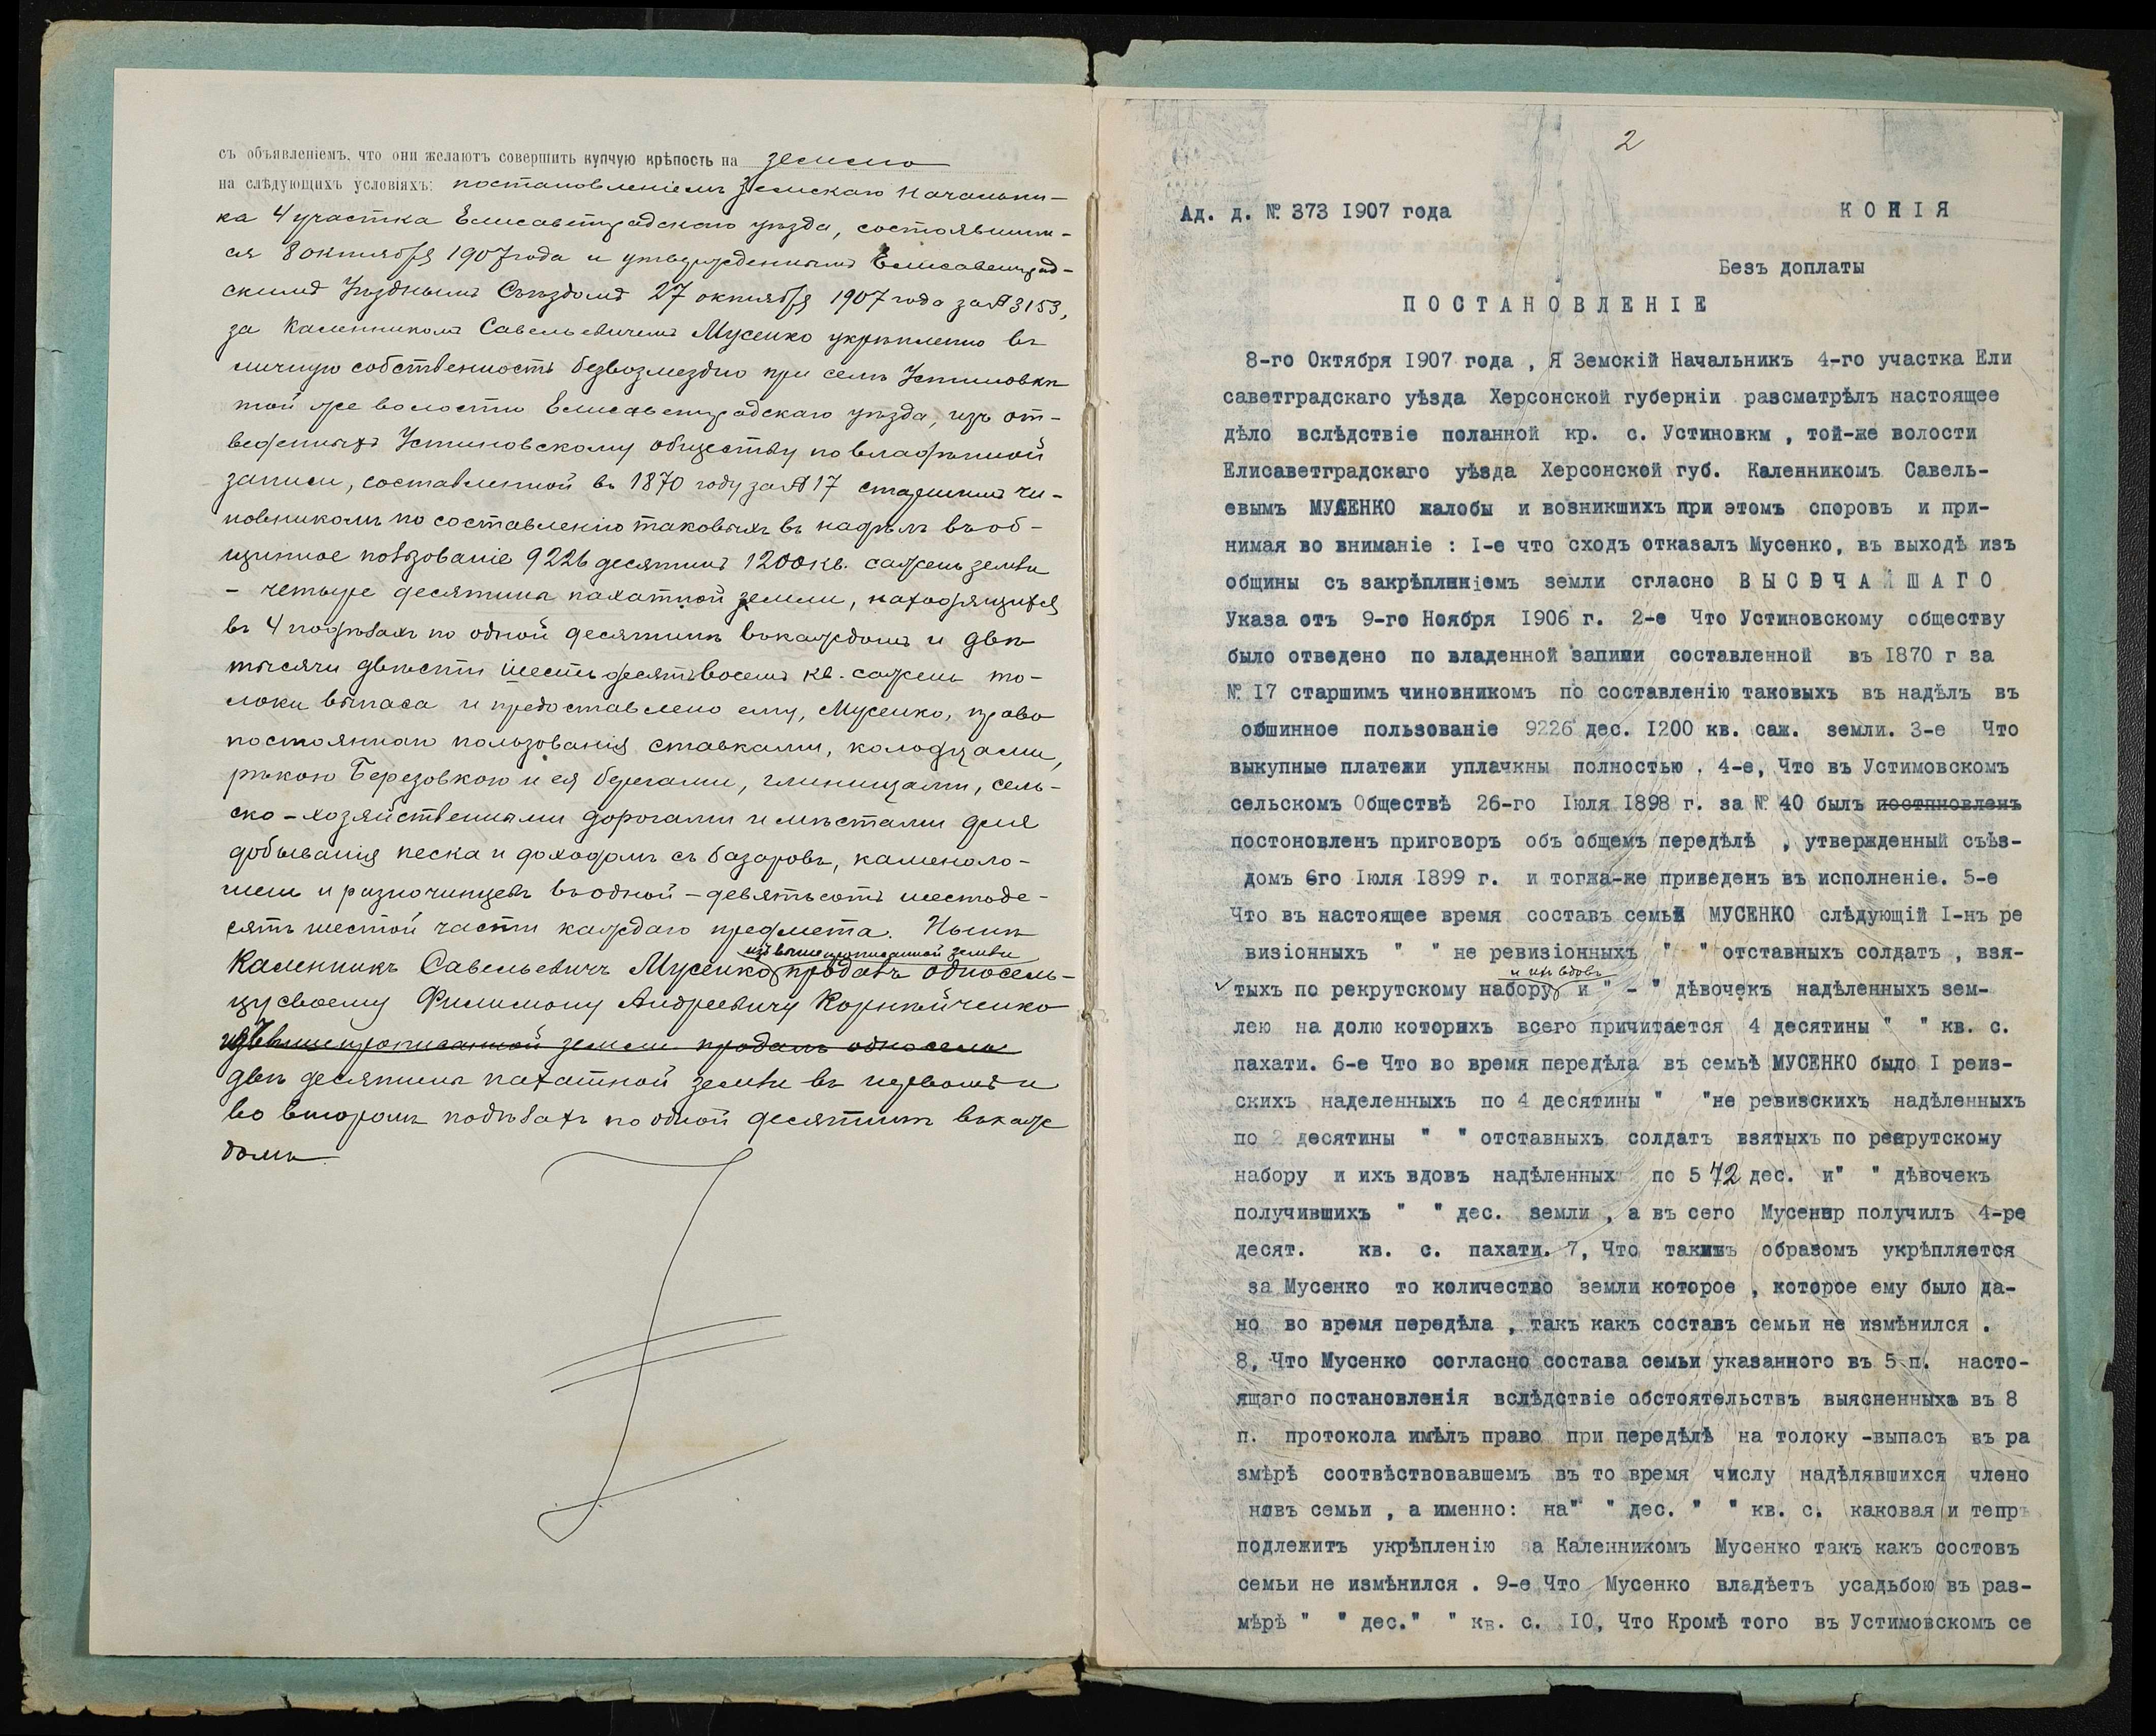 съ объявленіемъ, что они желаютъ совершить купчую крѣпость на землю
на слѣдующихъ условіяхъ: постановленіемъ Земскаго Начальни-
ка 4 участка Елисаветградскаго уѣзда, состоявшим-
ся 8 октября 1907 года и утвержденнымъ Елисаветград-
скимъ Уѣзднымъ Съѣздомъ 27 октября 1907 года за № 3153,
за Каленникомъ Савельевичемъ Мусенко укрѣплено въ
личную собственность безвозмездно при селѣ Устиновкѣ
той же волости Елисаветградскаго уѣзда, изъ от-
веденныхъ Устиновскому обществу по владѣнной
записи, составленной въ 1870 году за № 17 старшимъ чи-
новникомъ по составленію таковыхъ въ надѣлъ въ об-
щинное пользованіе 9226 десятинъ 1200 кв. сажень земли
- четыре десятины пахатной земли, находящихся
въ 4 подѣлахъ по одной десятинѣ въ каждомъ и двѣ
тысячи двѣсти шестьдесятъ восемь кв. сажень то-
локи выпаса и предоставлено ему, Мусенко, право
постояннаго пользованія ставками, колодцами,
рѣкою Березовкою и ея берегами, глинищами, сель-
ско-хозяйственными дорогами и мѣстами для
добыванія песка и доходомъ съ базаровъ, каменоло-
менъ и разночинцевъ въ одной - девятьсотъ шестьде-
сятъ шестой части каждаго предмета. Нынѣ
изъ вышепрописанной земли
Каленникъ Савельевичъ Мусенко продалъ односель-
цу своему Филимону Андреевичу Корнѣйченко
изъ вышепрописанной земли продалъ односель
двѣ десятины пахатной земли въ первомъ и
во второмъ подѣлахъ по одной десятинѣ въ каж
домъ
2
Ад. д. № 373 I907 года КОПІЯ
Безъ доплаты
ПОСТАНОВЛЕНІЕ
8-го Октября I907 года , Я Земскій Начальникъ 4-го участка Ели
саветградскаго уѣзда Херсонской губерніи разсматрѣлъ настоящее
дѣло вслѣдствіе поланной кр. с. Устиновкм , той-же волости
Елисаветградскаго уѣзда Херсонской губ. Каленникомъ Савель-
евымъ МУСЕНКО жалобы и возникшихъ при этомъ споровъ и при-
нимая во вниманіе : I-е что сходъ отказалъ Мусенко, въ выходѣ изъ
общины съ закрѣпленіемъ земли сгласно ВЫСОЧАЙШАГО
Указа отъ 9-го Ноября I906 г. 2-е Что Устиновскому обществу
было отведено по владенной записи составленной въ I870 г за
№ I7 старшимъ чиновникомъ по составленію таковыхъ въ надѣлъ въ
общинное пользованіе 9226 дес. I200 кв. саж. земли. 3-е Что
выкупные платежи уплачкны полностью . 4-е, Что въ Устимовскомъ
сельскомъ Обществѣ 26-го Іюля I898 г. за № 40 былъ постпновленъ
постоновленъ приговоръ объ общемъ передѣлѣ , утвержденный съѣз-
домъ 6го Іюля I899 г. и тогжа-же приведенъ въ исполненіе. 5-е
Что въ настоящее время составъ семьи МУСЕНКО слѣдующій I-нъ ре
визіонныхъ " " не ревизіонныхъ " " отставныхъ солдатъ , взя-
и ихъ вдовъ
тыхъ по рекрутскому набору и " - " дѣвочекъ надѣленныхъ зем-
лею на долю которяхъ всего причитается 4 десятины " " кв. с.
пахати. 6-е Что во время передѣла въ семьѣ МУСЕНКО быдо I реиз-
скихъ наделенныхъ по 4 десятины " "не ревизскихъ надѣленныхъ
по 2 десятины " " отставныхъ солдатъ взятыхъ по рекрутскому
набору и ихъ вдовъ надѣленных по 5 1/2 дес. и" " дѣвочекъ
получившихъ " " дес. земли , а въ сего Мусенкр получилъ 4-ре
десят. кв. с. пахати. 7, Что такимъ образомъ укрѣпляется
за Мусенко то количество земли которое , которое ему было да-
но во время передѣла , такъ какъ составъ семьи не измѣнился .
8, Что Мусенко согласно состава семьи указанного въ 5 п. насто-
ящаго постановленія вслѣдствіе обстоятельствъ выясненныхъ въ 8
п. протокола имѣлъ право при передѣлѣ на толоку -выпасъ въ ра
змѣрѣ соотвѣствовавшемъ въ то время числу надѣлявшихся члено
новъ семьи , а именно: на" " дес. " " кв. с. каковая и тепрь
подлежитъ укрѣпленію за Каленникомъ Мусенко такъ какъ состовъ
семьи не измѣнился . 9-е Что Мусенко владѣетъ усадьбою въ раз-
мѣрѣ " " дес." " кв. с. I0, Что Кромѣ того въ Устимовскомъ се